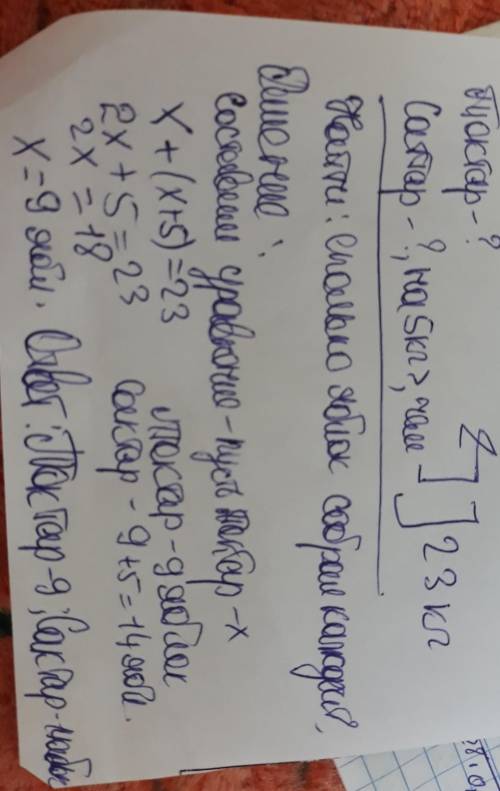 Токтар - ?
Саттар - ?, на 5кг >, чем ] 23 кг
Найти: Сколько яблок собрал каждый?
Решение:
Составим уравнение - пусть токтар - x
x + (x+5) = 23
2x + 5 = 23
2x = 18
x = 9 ябл.
Токтар - 9 яблок
Сактар - 9+5=14 ябл.
Ответ: Токтар - 9; Сактар -
38.0